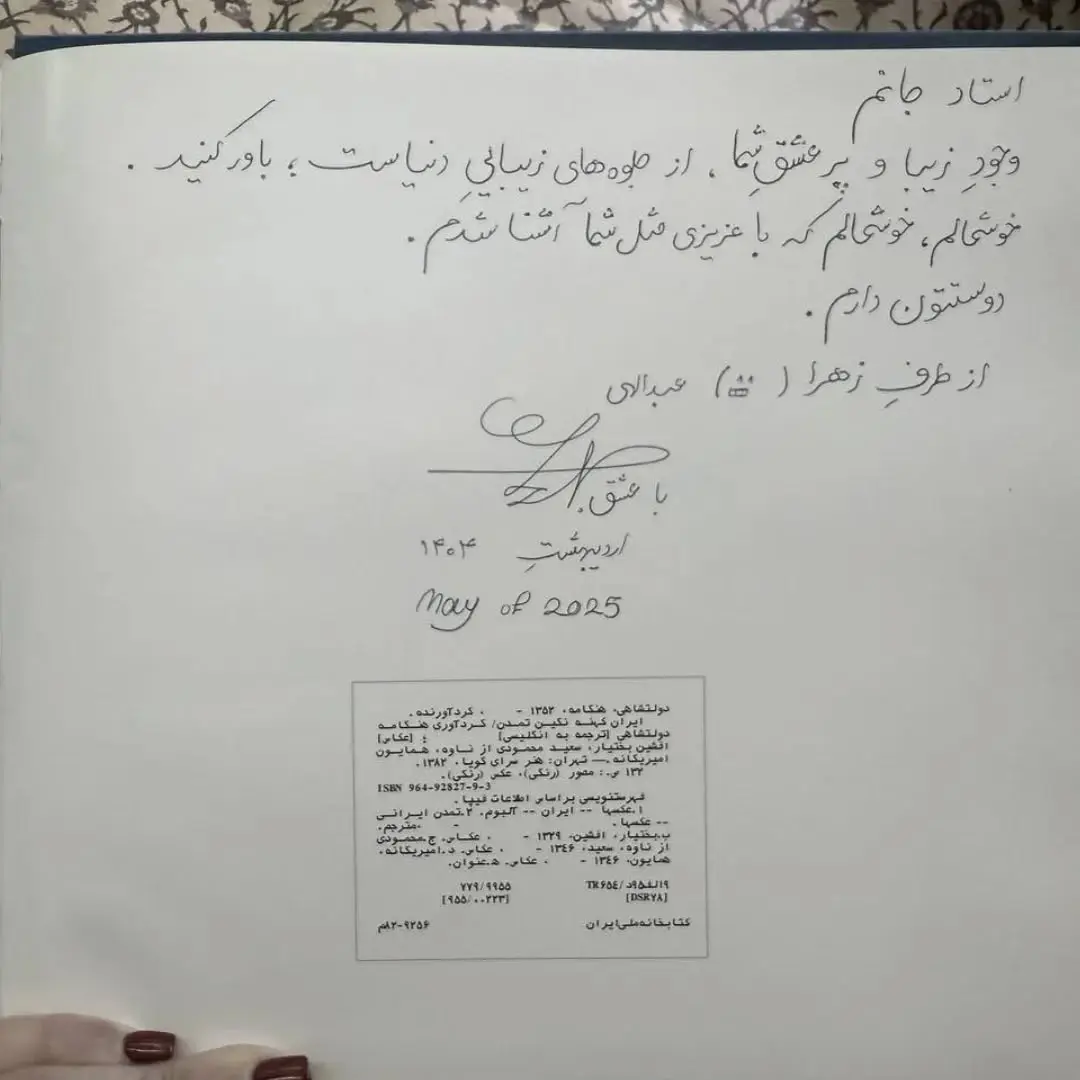 استاد جانم
وجودِ زیبا و پر عشقِ شما، از جلوه‌های زیباییِ دنیاست؛ باور کنید.
خوشحالم، خوشحالم که با عزیزی مثل شما آشنا شدم.
دوستتون دارم.
از طرفِ زهرا ( ) عبدالهی
با عشق.
اردیبهشتِ ۱۴۰۴
May of 2025
دولتشاهی، هنگامه، ۱۳۵۲ - ، گردآورنده.
ایران کهنه نگین تمدن/ گردآوری هنگامه
دولتشاهی [ترجمه به انگلیسی] ؛ [عکاس]
افشین بختیار، سعید محمودی از ناوه، همایون
امیریگانه.— تهران: هنر سرای گویا، ۱۳۸۲.
۱۳۲ ص.: مصور (رنگی)، عکس (رنگی).
ISBN 964-92827-9-3
فهرستنویسی براساس اطلاعات فیپا.
۱.عکسها -- ایران -- آلبوم. ۲.تمدن ایرانی
-- عکسها. - ،مترجم.
ب.بختیار، افشین، ۱۳۲۹ - ، عکاس. ج.محمودی
از ناوه، سعید، ۱۳۴۶ - ، عکاس. د.امیریگانه،
همایون، ۱۳۴۶ - ، عکاس. ه.عنوان.
۷۷۹/۹۹۵۵ TR۶۵۴/
[۹۵۵/۰۰۲۲۳] [DSR۷۸]
کتابخانه ملی ایران م۸۲-۹۲۵۶